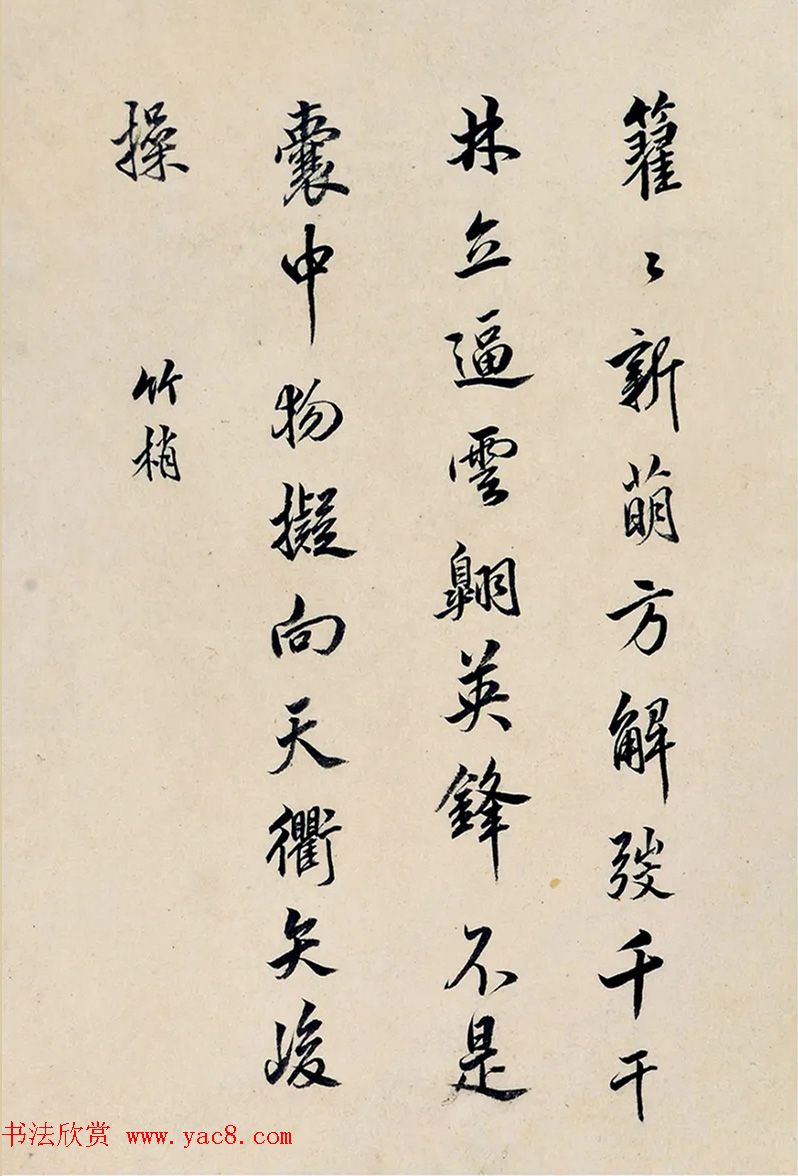 籊〻新萌方解發千干
林立逼雲翺英鋒不是
囊中物擬向天衢矢峻
操
竹梢
书法欣赏 www.yac8.com